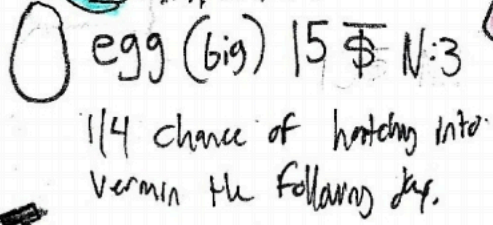 egg (big) 15 $ N:3
1/4 chance of hatching into
vermin the following day.